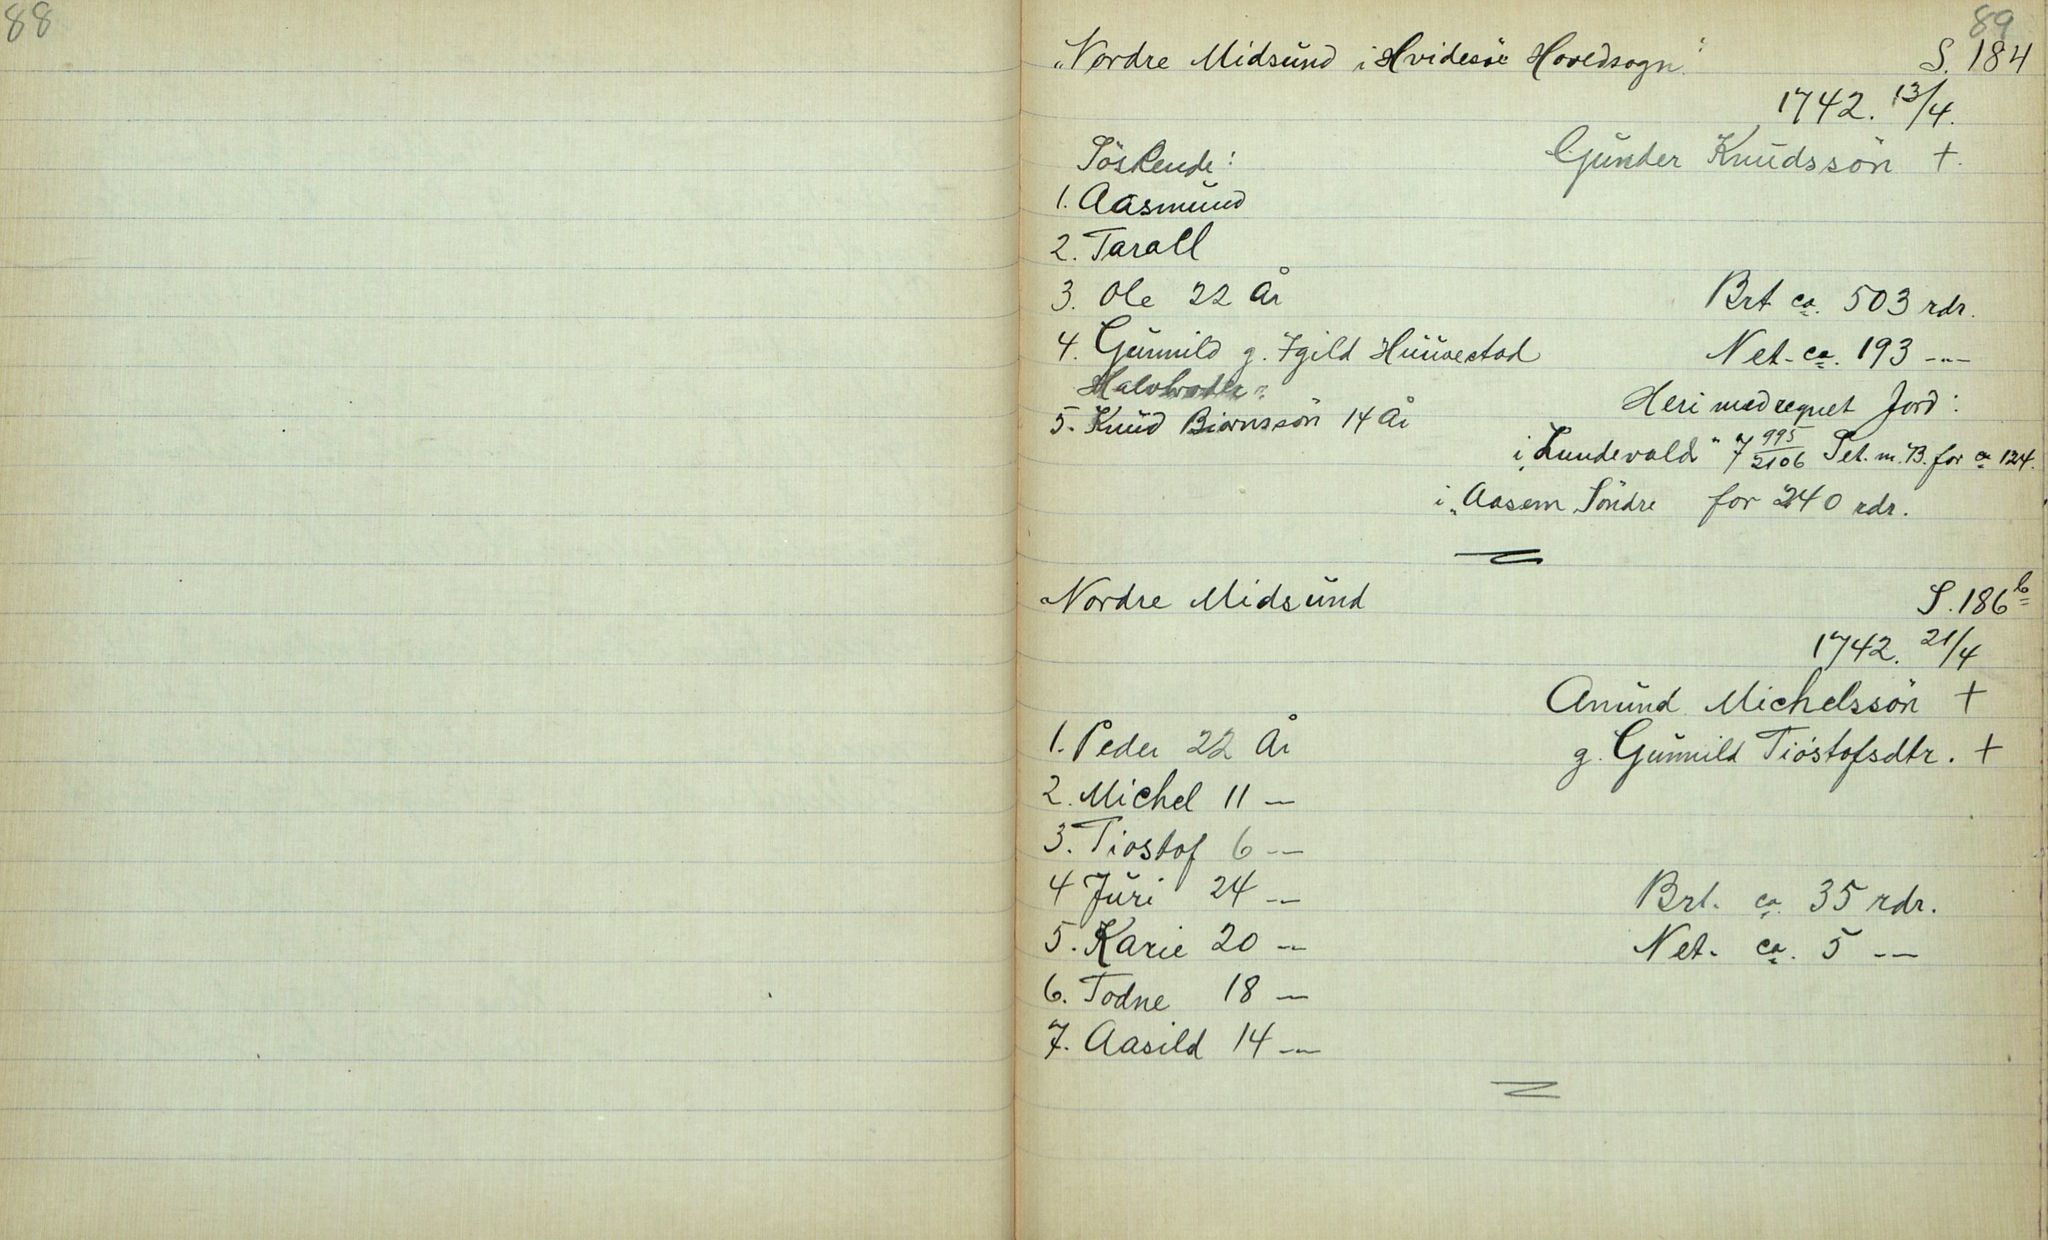 88
89
„Nordre Midsund i Hvidesöe Hovedsogn“ S. 184
1742. 13/4.
Söskende: Gunder Knudssön +.
1. Aasmund
2. Tarall
3. Ole 22 År Brt ca. 503 rdr.
4. Gunnild g. Igild Huuvestad Net. ca. 193 -"-
Heri medregnet Jord:
5. Knud Biørnssön 14 År
i „Lundevald“ 7 995/2106 Set. m. B. for ca 124.
i „Aasem Söndre for 240 rdr.
Nordre Midsund S. 186 b
1742. 21/4
Anund Michelssön +
1. Peder 22 År g. Gunnild Tiostofsdtr. +
2. Michel 11 -"-
3. Tiostof 6 -"-
4 Juri 24 -"- Brt. ca. 35 rdr.
5. Karie 20 -"- Net. ca. 5 -"-
6. Todne 18 -"-
7. Aasild 14 -"-